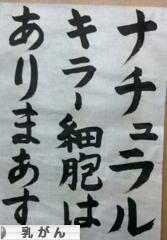 ナチュラル
キラー細胞は
ありまあす
乳がん